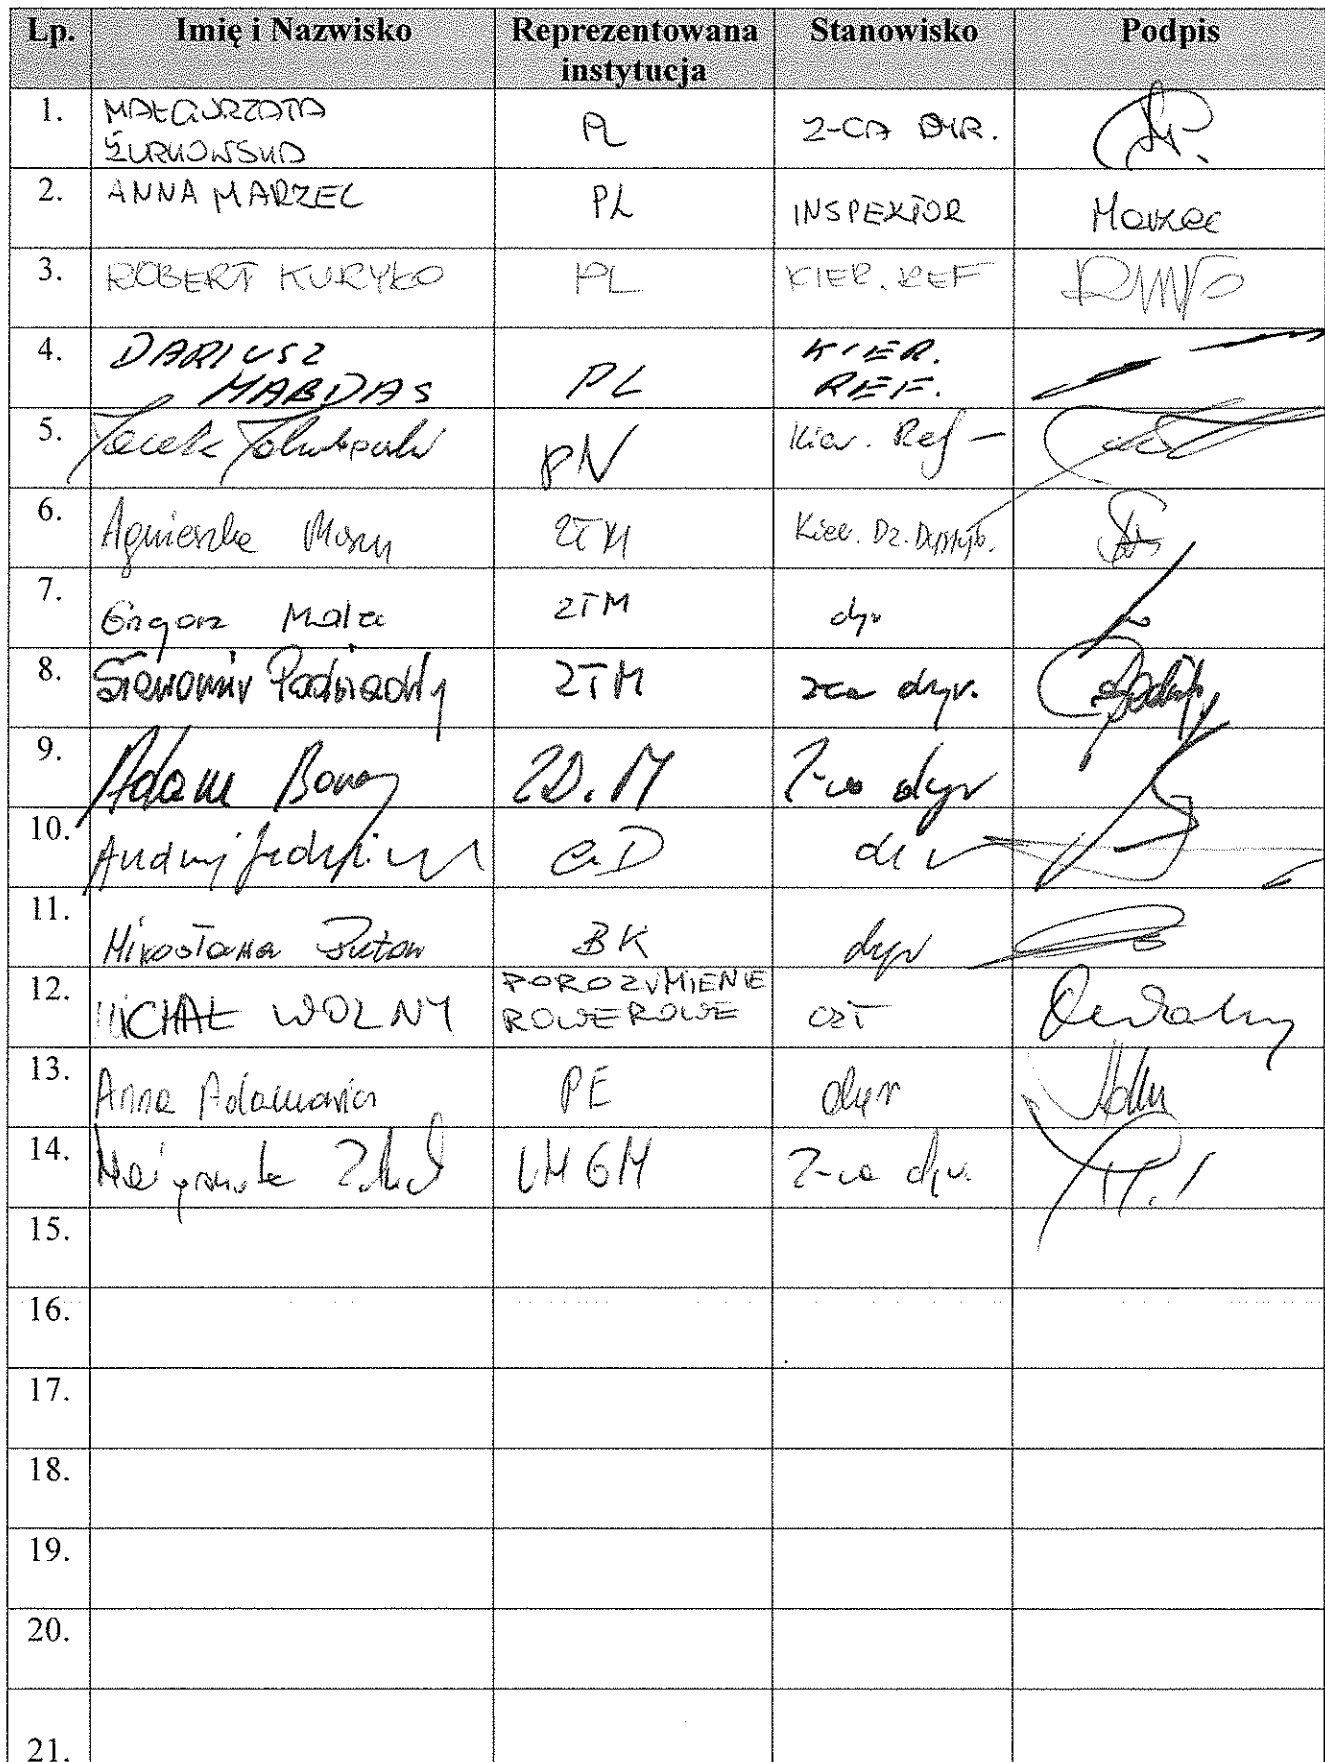 Lp. Imię i Nazwisko Reprezentowana instytucja Stanowisko Podpis
1. MAŁGORZATA ŻURKOWSKA PL Z-CA DYR.
2. ANNA MARZEC PL INSPEKTOR Marzec
3. ROBERT KURYŁO PL KIER. REF
4. DARIUSZ MABDAS PL KIER. REF.
5. Jacek PN Kier. Ref
6. Agnieszka ZTM Kier. Dz.
7. Grzegorz Malec ZTM dyr
8. Sławomir Podsiadły ZTM zca dyr.
9. Adam ZD.M Z-ca dyr
10. Andrzej
11. Mirosława Puton BK dyr
12. MICHAŁ WOLNY POROZUMIENIE ROWEROWE CZŁ
13. Anna Adamowicz PE dyr
14. Z-ca dyr.
15.
16.
17.
18.
19.
20.
21.